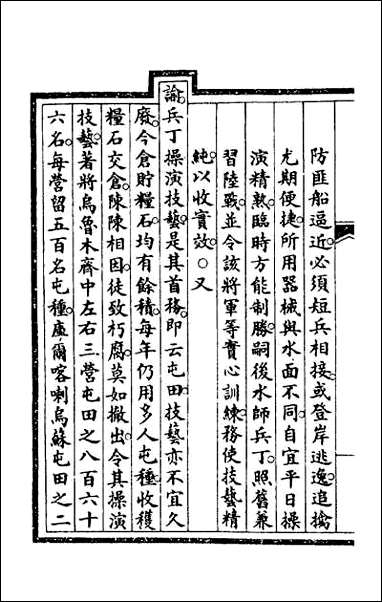 防匪船逼近必須短兵相接或登岸逃逸追擒
尤期便捷所用器械與水面不同自宜平日操
演精熟臨時方能制勝嗣後水師兵丁照舊兼
習陸戰並令該將軍等實心訓練務使技藝精
純以收實效○又
諭兵丁操演技藝是其首務即云屯田技藝亦不宜久
廢今倉貯糧石均有餘積每年仍用多人屯種收穫
糧石交倉陳陳相因徒致朽腐莫如撤出令其操演
技藝著將烏魯木齊中左右三營屯田之八百六十
六名每營留五百名屯種盧爾喀喇烏蘇屯田之二